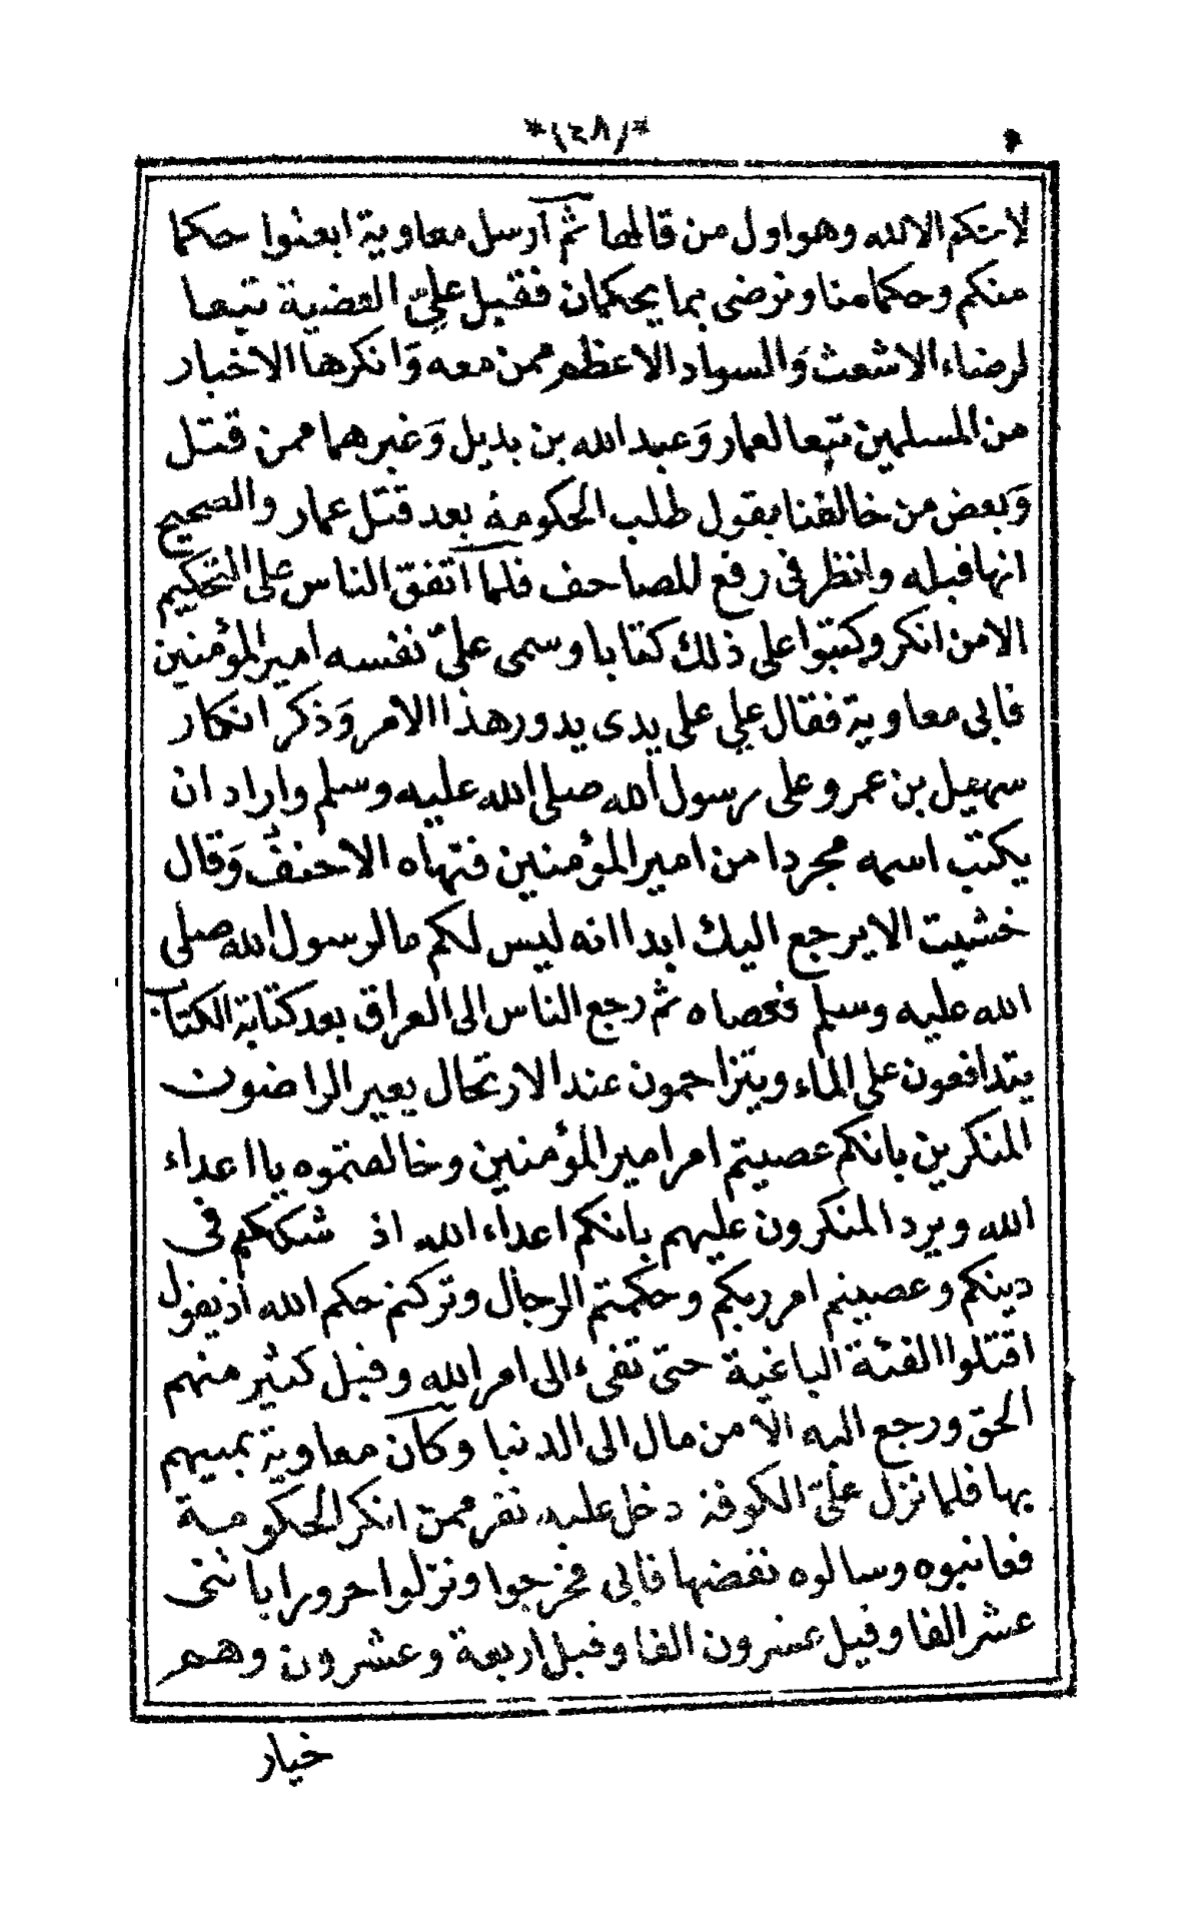 *(١٤٨)*
لاحكم الا لله وهو اول من قالها ثم ارسل معاوية ابعثوا حكما
منكم وحكما منا ونرضى بما يحكمان فقبل عليّ القضية تبعا
لرضاء الاشعث وَالسواد الاعظم ممن معه وَانكرها الاخيار
من المسلمين تبعا لعمار وَعبد الله بن بديل وَغيرهما ممن قتل
وَبعض من خالفنا يقول طلب الحكومة بعد قتل عمار والصحيح
انها قبله وانظر في رفع المصاحف فلما اتفق الناس على التحكيم
الا من انكر وكتبوا على ذلك كتابا وسمى عليّ نفسه امير المؤمنين
فابى معاوية فقال علي على يدى يدور هذا الامر وَذكر انكار
سهيل بن عمرو على رسول الله صلى الله عليه وسلم واراد ان
يكتب اسمه مجردا من امير المؤمنين فنهاه الاحنف وَقال
خشيت الا يرجع اليك ابدا انه ليس لكم ما لرسول الله صلى
الله عليه وسلم فعصاه ثم رجع الناس الى العراق بعد كتابة الكتاب
يتدافعون على الماء ويتزاحمون عند الارتحال يعير الراضون
المنكرين بانكم عصيتم امر امير المؤمنين وخالفتموه يا اعداء
الله ويرد المنكرون عليهم بانكم اعداء الله اذ شككتم فى
دينكم وعصيتم امر ربكم وحكمتم الرجال وتركتم حكم الله اذ يقول
اقتلوا الفئة الباغية حتى تفىء الى امر الله وقبل كثير منهم
الحق ورجع اليه الا من مال الى الدنيا وكان معاوية يمنيهم
بها فلما نزل عليّ الكوفة دخل عليه نفر ممن انكر الحكومة
فعاتبوه وسالوه نقضها فابى فخرجوا ونزلوا حرورا باثنى
عشر الفا وقيل عشرون الفا وقيل اربعة وعشرون وهم
خيار